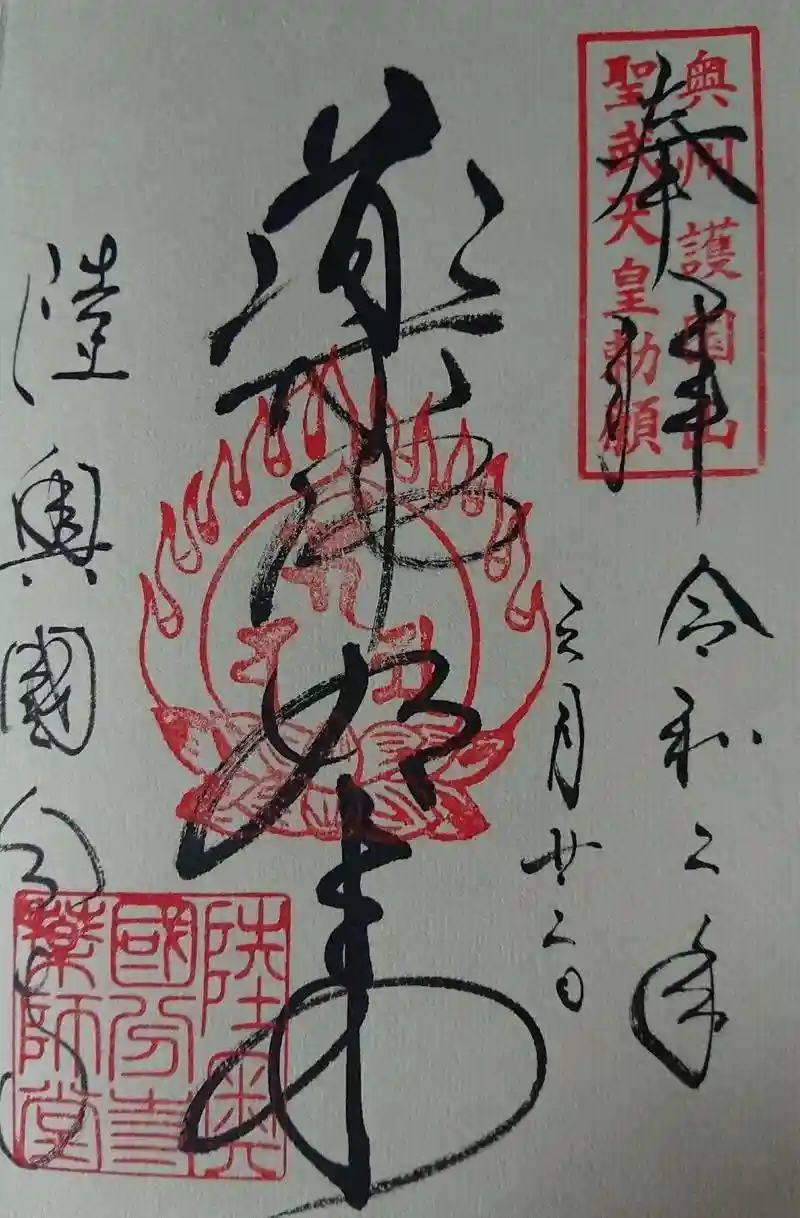 奥州 護国山
聖武天皇勅願
奉拝
令和二年
月廿二日
薬師如来
陸奥國分寺
陸奥
國分寺
薬師堂